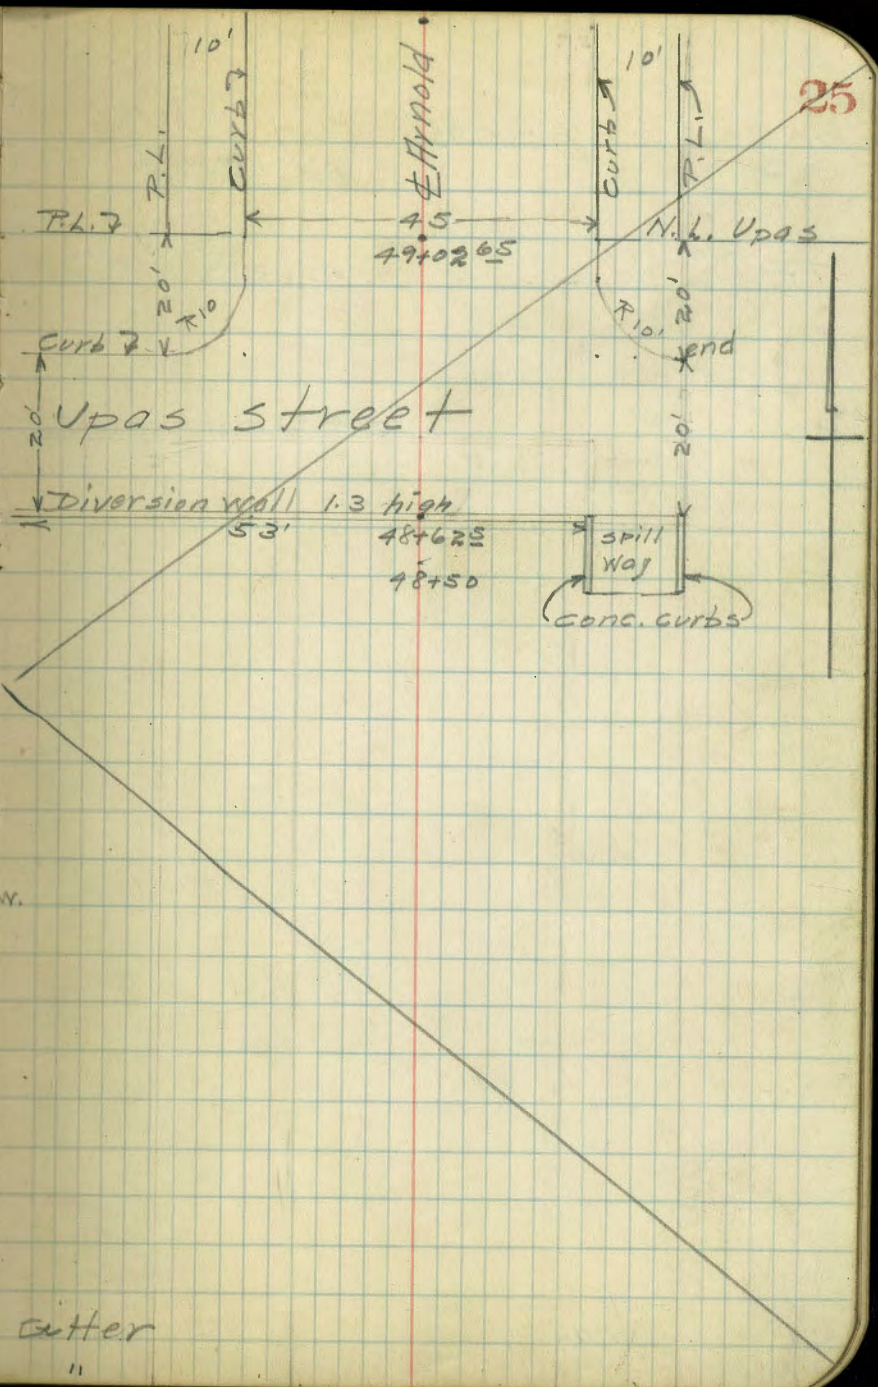 10'
10'
25
P.L.
Curb
℄ Arnold
Curb
P.L.
P.L.
45
N.L. Upas
49+02 65
20'
R10
R10'
20'
Curb
end
20'
Upas street
20'
Diversion wall 1.3 high
53'
48+62 5
spill
way
48+50
conc. curbs
w.
Gutter
"